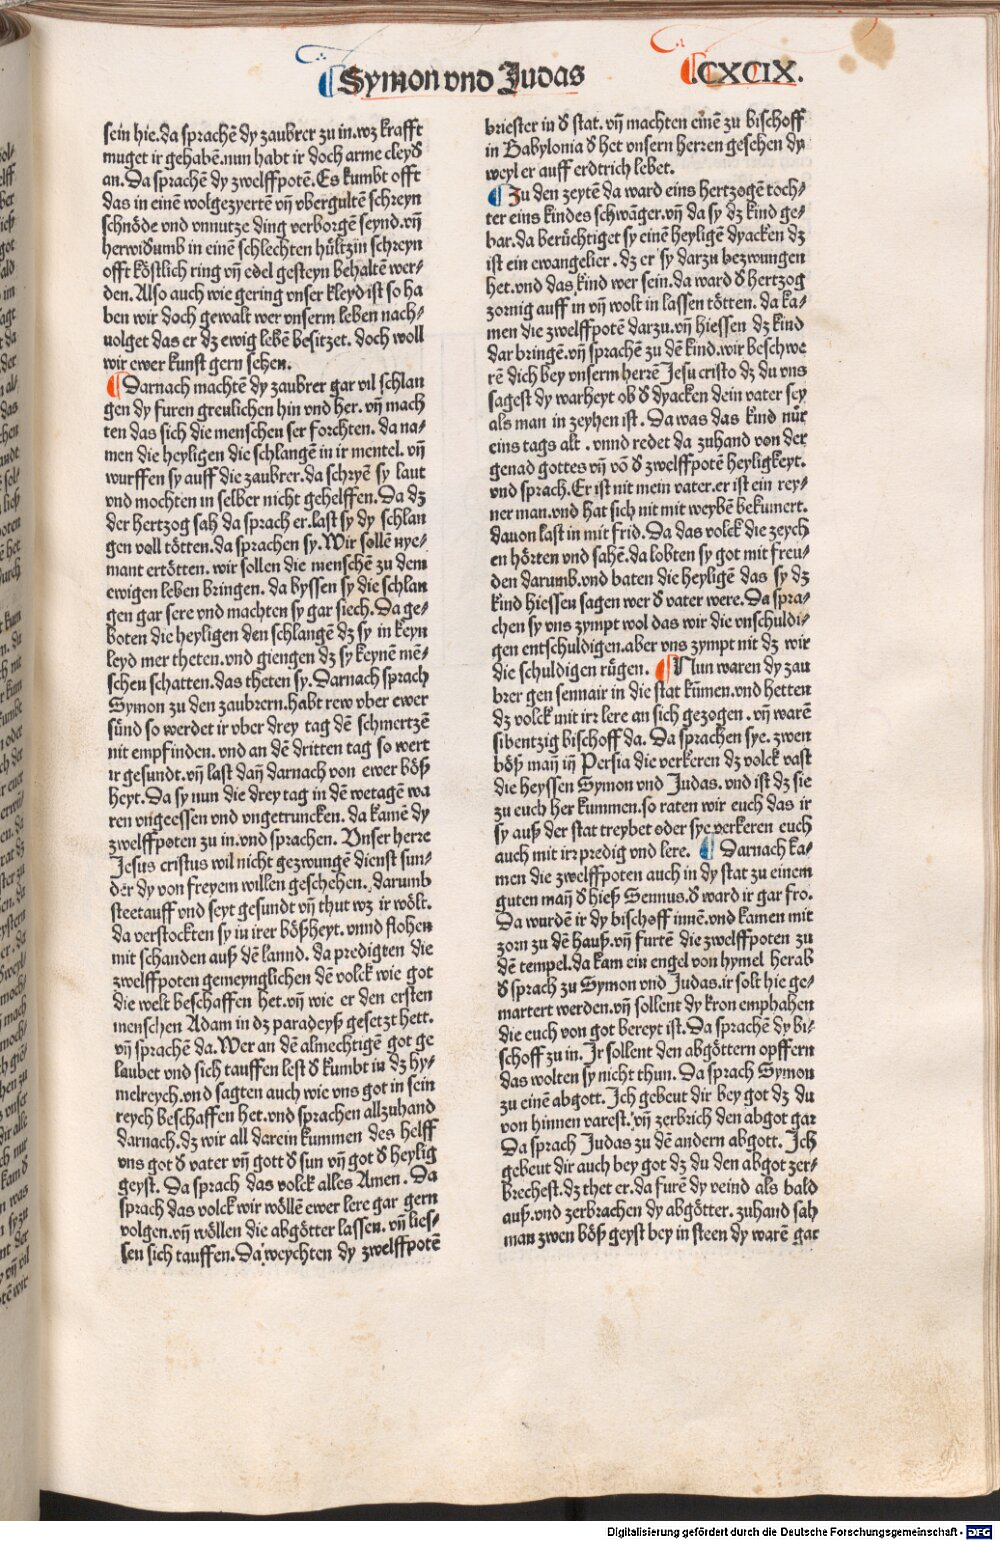 Symon vnd Judas
CXCIX.
sein hie. da sprachē dy zaubrer zu in. wz krafft
muget ir gehabē. nun habt ir doch arme cleyd
an. Da sprachē dy zwelffpotē. Es kumbt offt
das in einē wolgezyertē vñ vbergultē schreyn
schnöde vnd vnnutze ding verborgē seynd. vñ
herwidumb in einē schlechten hültzin schreyn
offt köstlich ring vñ edel gesteyn behaltē wer⸗
den. Also auch wie gering vnser kleyd ist so ha
ben wir doch gewalt wer vnserm leben nach⸗
uolget das er dz ewig lebē besitzet. doch woll
wir ewer kunst gern sehen.
Darnach machtē dy zaubrer gar vil schlan
gen dy furen greulichen hin vnd her. vñ mach
ten das sich die menschen ser forchten. da na⸗
men die heyligen die schlangē in ir mentel. vñ
wurffen sy auff die zaubrer. da schryē sy laut
vnd mochten in selber nicht gehelffen. Da dz
der hertzog sah da sprach er. last sy dy schlan
gen voll tötten. da sprachen sy. Wir sollē nye⸗
mant ertötten. wir sollen die menschē zu dem
ewigen leben bringen. da byssen sy die schlan
gen gar sere vnd machten sy gar siech. Da ge⸗
boten die heyligen den schlangē dz sy in keyn
leyd mer theten. vnd giengen dz sy keynē mē⸗
schen schatten. das theten sy. Darnach sprach
Symon zu den zaubrern. habt rew vber ewer
sünd so werdet ir vber drey tag dē schmertzē
nit empfinden. vnd an dē dritten tag so wert
ir gesundt. vñ last dañ darnach von ewer böß
heyt. Da sy nun die drey tag in dē wetagē wa
ren vngeessen vnd vngetruncken. da kamē dy
zwelffpoten zu in. vnd sprachen. Vnser herre
Jesus cristus wil nicht gezwungē dienst sun⸗
der dy von freyem willen geschehen. darumb
steetauff vnd seyt gesundt vñ thut wz ir wölt.
da verstockten sy in irer bößheyt. vnnd flohen
mit schanden auß dē lannd. da predigten die
zwelffpoten gemeynglichen dē volck wie got
die welt beschaffen het. vñ wie er den ersten
menschen Adam in dz paradeyß gesetzt hett.
vñ sprachē da. Wer an dē almechtigē got ge
laubet vnd sich tauffen lest d kumbt in dz hy⸗
melreych. vnd sagten auch wie vns got in sein
reych beschaffen het. vnd sprachen allzuhand
darnach. dz wir all darein kummen des helff
vns got d vater vñ gott d sun vñ got d heylig
geyst. Da sprach das volck alles Amen. Da
sprach das volck wir wöllē ewer lere gar gern
volgen. vñ wöllen die abgötter lassen. vñ lies⸗
sen sich tauffen. Da weychten dy zwelffpotē
briester in d stat. vñ machten einē zu bischoff
in Babylonia d het vnsern herren gesehen dy
weyl er auff erdtrich lebet.
Zu den zeytē da ward eins hertzogē toch⸗
ter eins kindes schwāger. vñ da sy dz kind ge⸗
bar. da berüchtiget sy einē heyligē dyacken dz
ist ein ewangelier. dz er sy darzu bezwungen
het. vnd das kind wer sein. da ward d hertzog
zornig auff in vñ wolt in lassen tötten. da ka⸗
men die zwelffpotē darzu. vñ hiessen dz kind
dar bringē. vñ sprachē zu dē kind. wir beschwe
rē dich bey vnserm herrē Jesu cristo dz du vns
sagest dy warheyt ob d dyacken dein vater sey
als man in zeyhen ist. Da was das kind nür
eins tags alt. vnnd redet da zuhand von der
genad gottes vñ vō d zwelffpotē heyligkeyt.
vnd sprach. Er ist nit mein vater. er ist ein rey⸗
ner man. vnd hat sich nit mit weybē bekumert.
dauon last in mit frid. Da das volck die zeych
en hörten vnd sahē. da lobten sy got mit freu⸗
den darumb. vnd baten die heyligē das sy dz
kind hiessen sagen wer d vater were. Da spra⸗
chen sy vns zympt wol das wir die vnschuldi⸗
gen entschuldigen. aber vns zympt nit dz wir
die schuldigen rügen. Nun waren dy zau
brer gen sennair in die stat kūmen. vnd hetten
dz volck mit irr lere an sich gezogen. vñ warē
sibentzig bischoff da. Da sprachen sye. zwen
böß mañ iñ Persia die verkeren dz volck vast
die heyssen Symon vnd Judas. vnd ist dz sie
zu euch her kummen. so raten wir euch das ir
sy auß der stat treybet oder sye verkeren euch
auch mit irr predig vnd lere. Darnach ka⸗
men die zwelffpoten auch in dy stat zu einem
guten mañ d hieß Sennus. d ward ir gar fro.
Da wurdē ir dy bischoff innē. vnd kamen mit
zorn zu dē hauß. vñ furtē die zwelffpoten zu
dē tempel. da kam ein engel von hymel herab
d sprach zu Symon vnd Judas. ir solt hie ge⸗
martert werden. vñ sollent dy kron emphahen
die euch von got bereyt ist. Da sprachē dy bi⸗
schoff zu in. Jr sollent den abgöttern opffern
das wolten sy nicht thun. Da sprach Symon
zu einē abgott. Ich gebeut dir bey got dz du
von hinnen varest. vñ zerbrich den abgot gar
Da sprach Judas zu dē andern abgott. Ich
gebeut dir auch bey got dz du den abgot zer⸗
brechest. dz thet er. da furē dy veind als bald
auß. vnd zerbrachen dy abgötter. zuhand sah
man zwen böß geyst bey in steen dy warē gar
Digitalisierung gefördert durch die Deutsche Forschungsgemeinschaft - DFG